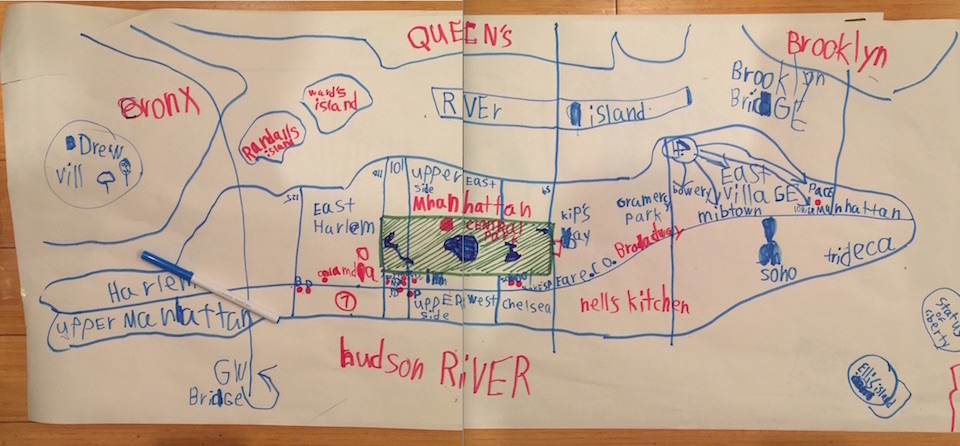 QUEEN's
Brooklyn
Bronx
ward's
island
Randall's
island
RIVEr
island
Brooklyn
BridGE
Drew
vill
101
UPPer
side
East
Mhanhattan
East
Harlem
CENTRAL
PARK
kip's
Bay
Gramers
park
bowery
EAST
VillaGE
PacE
mibtown
Manhattan
Broadway
soho
trideca
Harlem
7
UPPEr
side
West
chelsea
nells kitchen
UPPEr Manhattan
hudson RiVER
GW
BridGE
Status
of
liberty
Ellis island